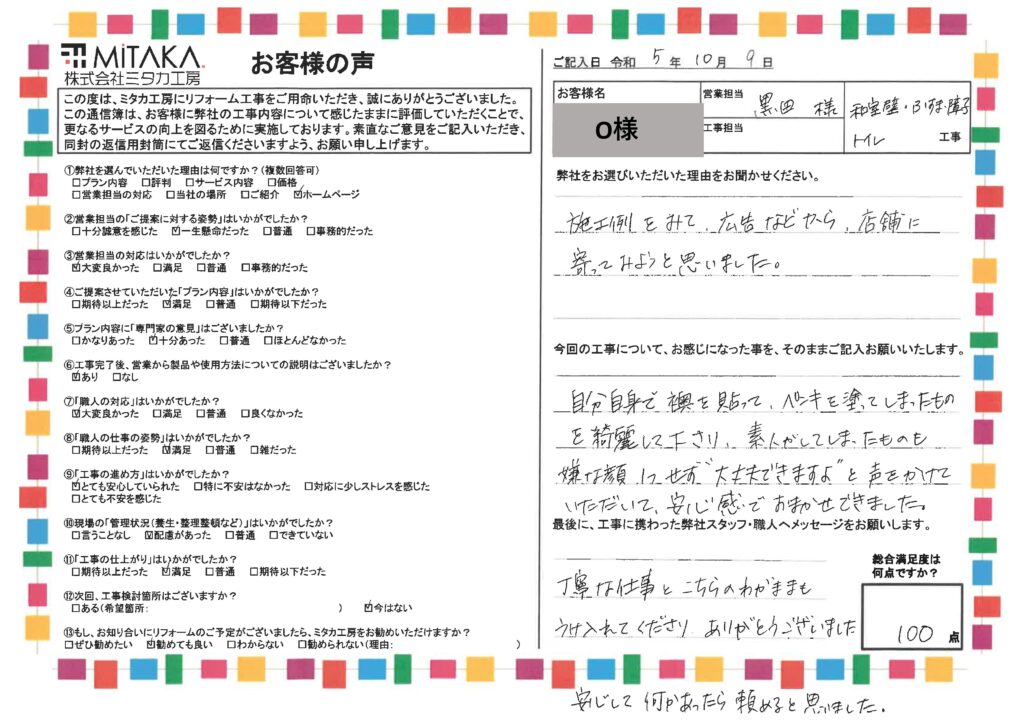 MiTAKA.
株式会社ミタカ工房
お客様の声
この度は、ミタカ工房にリフォーム工事をご用命いただき、誠にありがとうございました。
この通信簿は、お客様に弊社の工事内容について感じたままに評価していただくことで、
更なるサービスの向上を図るために実施しております。素直なご意見をご記入いただき、
同封の返信用封筒にてご返信くださいますよう、お願い申し上げます。
①弊社を選んでいただいた理由は何ですか?(複数回答可)
□プラン内容 □評判 □サービス内容 □価格
□営業担当の対応 □当社の場所 □ご紹介 ☑ホームページ
②営業担当の「ご提案に対する姿勢」はいかがでしたか?
□十分誠意を感じた ☑一生懸命だった □普通 □事務的だった
③営業担当の対応はいかがでしたか?
☑大変良かった □満足 □普通 □事務的だった
④ご提案させていただいた「プラン内容」はいかがでしたか?
□期待以上だった ☑満足 □普通 □期待以下だった
⑤プラン内容に「専門家の意見」はございましたか?
□かなりあった ☑十分あった □普通 □ほとんどなかった
⑥工事完了後、営業から製品や使用方法についての説明はございましたか?
☑あり □なし
⑦「職人の対応」はいかがでしたか?
☑大変良かった □満足 □普通 □良くなかった
⑧「職人の仕事の姿勢」はいかがでしたか?
□期待以上だった ☑満足 □普通 □雑だった
⑨「工事の進め方」はいかがでしたか?
☑とても安心していられた □特に不安はなかった □対応に少しストレスを感じた
□とても不安を感じた
⑩現場の「管理状況(養生・整理整頓など)」はいかがでしたか?
□言うことなし ☑配慮があった □普通 □できていない
⑪「工事の仕上がり」はいかがでしたか?
□期待以上だった ☑満足 □普通 □期待以下だった
⑫次回、工事検討箇所はございますか?
□ある(希望箇所: ) ☑今はない
⑬もし、お知り合いにリフォームのご予定がございましたら、ミタカ工房をお勧めいただけますか?
□ぜひ勧めたい ☑勧めても良い □わからない □勧められない(理由: )
ご記入日 令和 5 年 10 月 9 日
お客様名
O様
営業担当
黒田 様
工事担当
和室壁・ふすま・障子
トイレ 工事
弊社をお選びいただいた理由をお聞かせください。
施工例をみて、広告などから、店舗に
寄ってみようと思いました。
今回の工事について、お感じになった事を、そのままご記入お願いいたします。
自分自身で襖を貼って、ペンキを塗ってしまったもの
を綺麗して下さり、素人がしてしまったものも
嫌な顔1つせず"大丈夫できますよ"と声をかけて
いただいて、安心感でおまかせできました。
最後に、工事に携わった弊社スタッフ・職人へメッセージをお願いします。
丁寧な仕事とこちらのわがままも
うけ入れてくださり ありがとうございました
安心して何かあったら頼めると思いました。
総合満足度は
何点ですか?
100 点